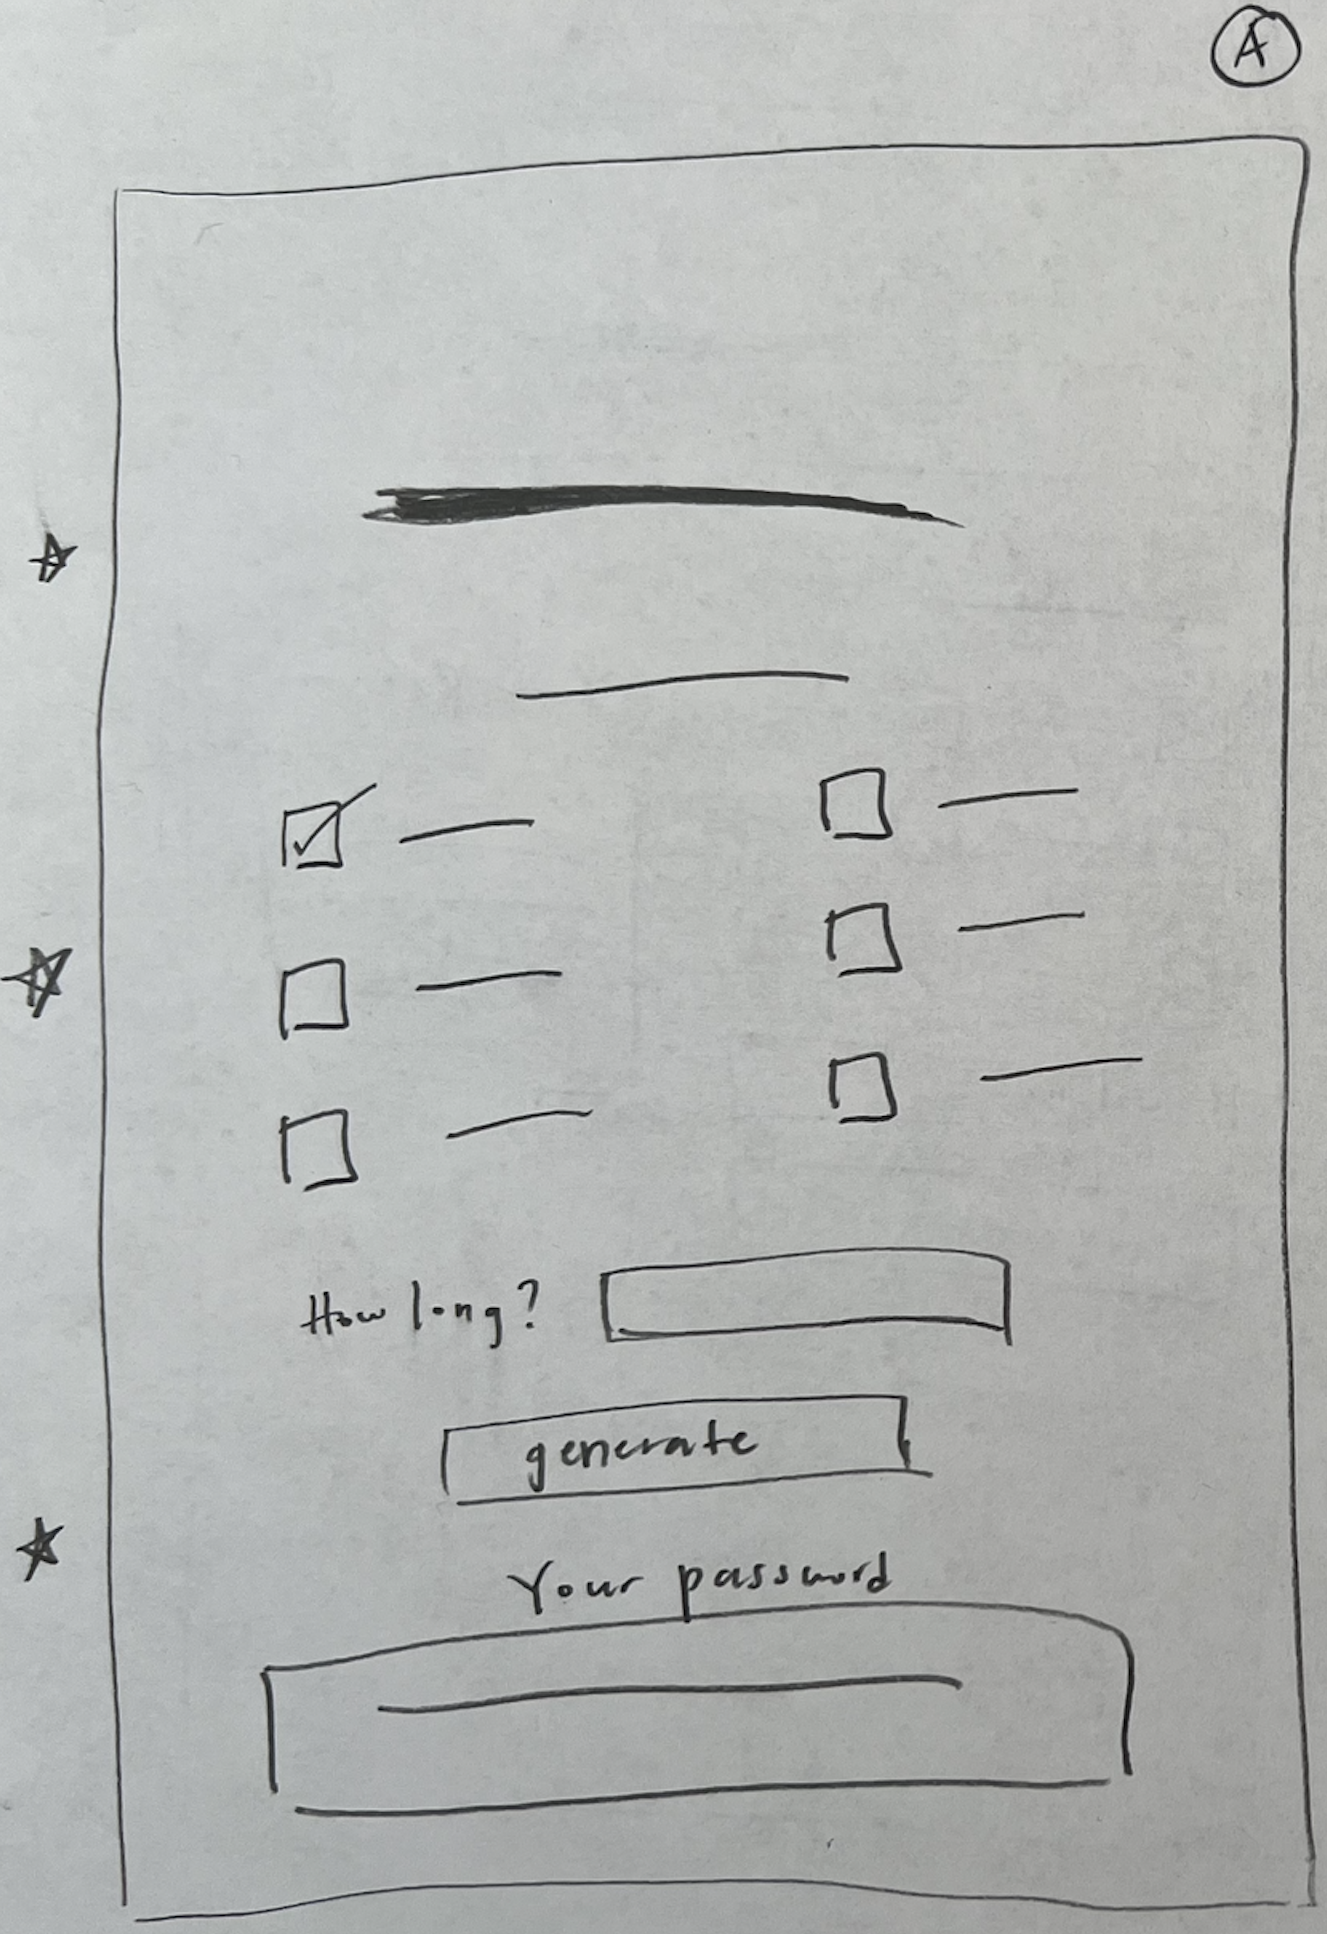 A
How long?
generate
Your password